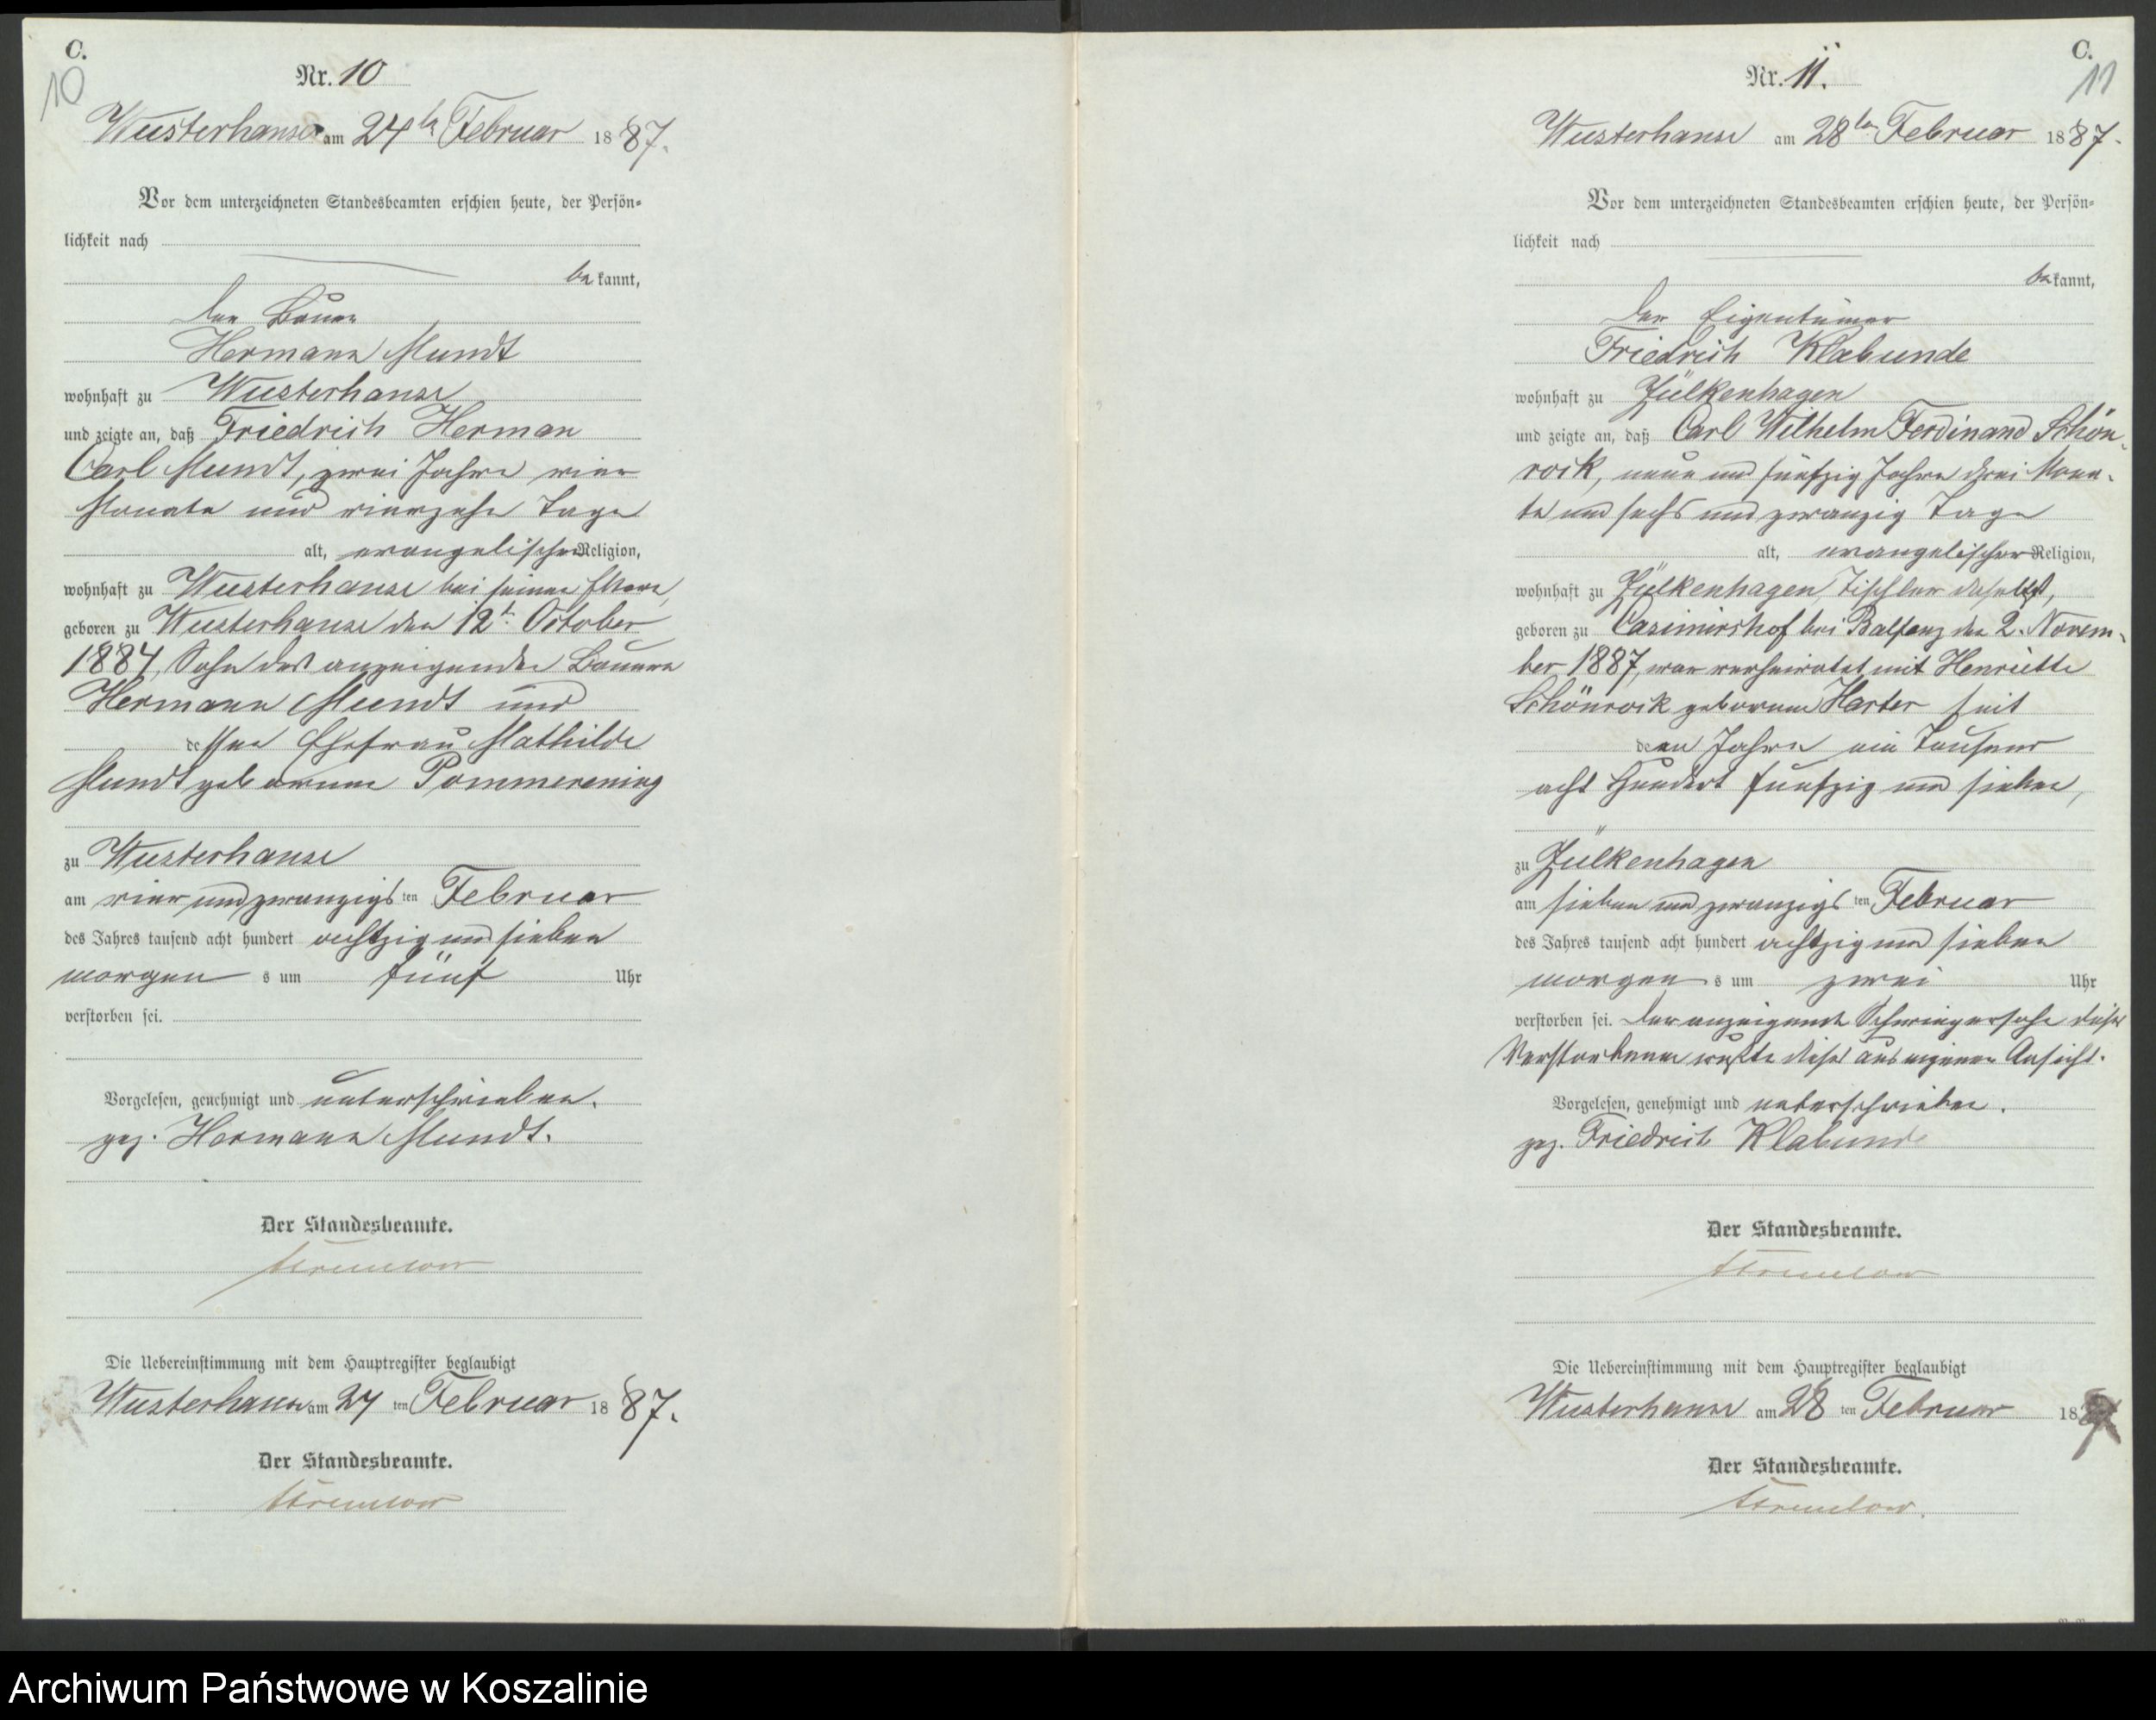 C.
10
Nr. 10
Wusterhanse am 24ten Februar 1887.
Vor dem unterzeichneten Standesbeamten erschien heute, der Persön=
lichkeit nach
bekannt,
der Bauer
Hermann Mundt
wohnhaft zu Wusterhanse
und zeigte an, daß Friedrich Herman
Carl Mundt, zwei Jahre vier
Monate und vierzehn Tage
alt, evangelischer Religion,
wohnhaft zu Wusterhanse bei seinen Eltern,
geboren zu Wusterhanse den 12t. October
1884, Sohn des anzeigenden Bauern
Hermann Mundt und
dessen Ehefrau Mathilde
Mundt geborene Pommerening
zu Wusterhanse
am vier und zwanzigsten Februar
des Jahres tausend acht hundert achtzig und sieben
morgens um fünf Uhr
verstorben sei.
Vorgelesen, genehmigt und unterschrieben.
gez. Hermann Mundt.
Der Standesbeamte.
Die Uebereinstimmung mit dem Hauptregister beglaubigt
Wusterhanse am 24 ten Februar 1887.
Der Standesbeamte.
C.
11
Nr. 11.
Wusterhanse am 28ten Februar 1887.
Vor dem unterzeichneten Standesbeamten erschien heute, der Persön=
lichkeit nach
bekannt,
der Eigentümer
Friedrich Klabunde
wohnhaft zu Zülkenhagen
und zeigte an, daß Carl Wilhelm Ferdinand Schön-
rock, neun und fünfzig Jahre drei Mona-
te und sechs und zwanzig Tage
alt, evangelischer Religion,
wohnhaft zu Zülkenhagen, Tischler daselbst,
geboren zu Casimirshof bei Balfanz den 2. Novem-
ber 1887, war verheiratet mit Henriette
Schönrock geborene Harter seit
dem Jahre ein Tausend
acht Hundert fünfzig und sieben,
zu Zülkenhagen
am sieben und zwanzigsten Februar
des Jahres tausend acht hundert achtzig und sieben
morgens um zwei Uhr
verstorben sei. Der anzeigende Schwiegersohn dieses
Verstorbenen wußte dieses aus eigener Ansicht.
Vorgelesen, genehmigt und unterschrieben.
gez. Friedrich Klabunde
Der Standesbeamte.
Die Uebereinstimmung mit dem Hauptregister beglaubigt
Wusterhanse am 28 ten Februar 1887
Der Standesbeamte.
Archiwum Państwowe w Koszalinie